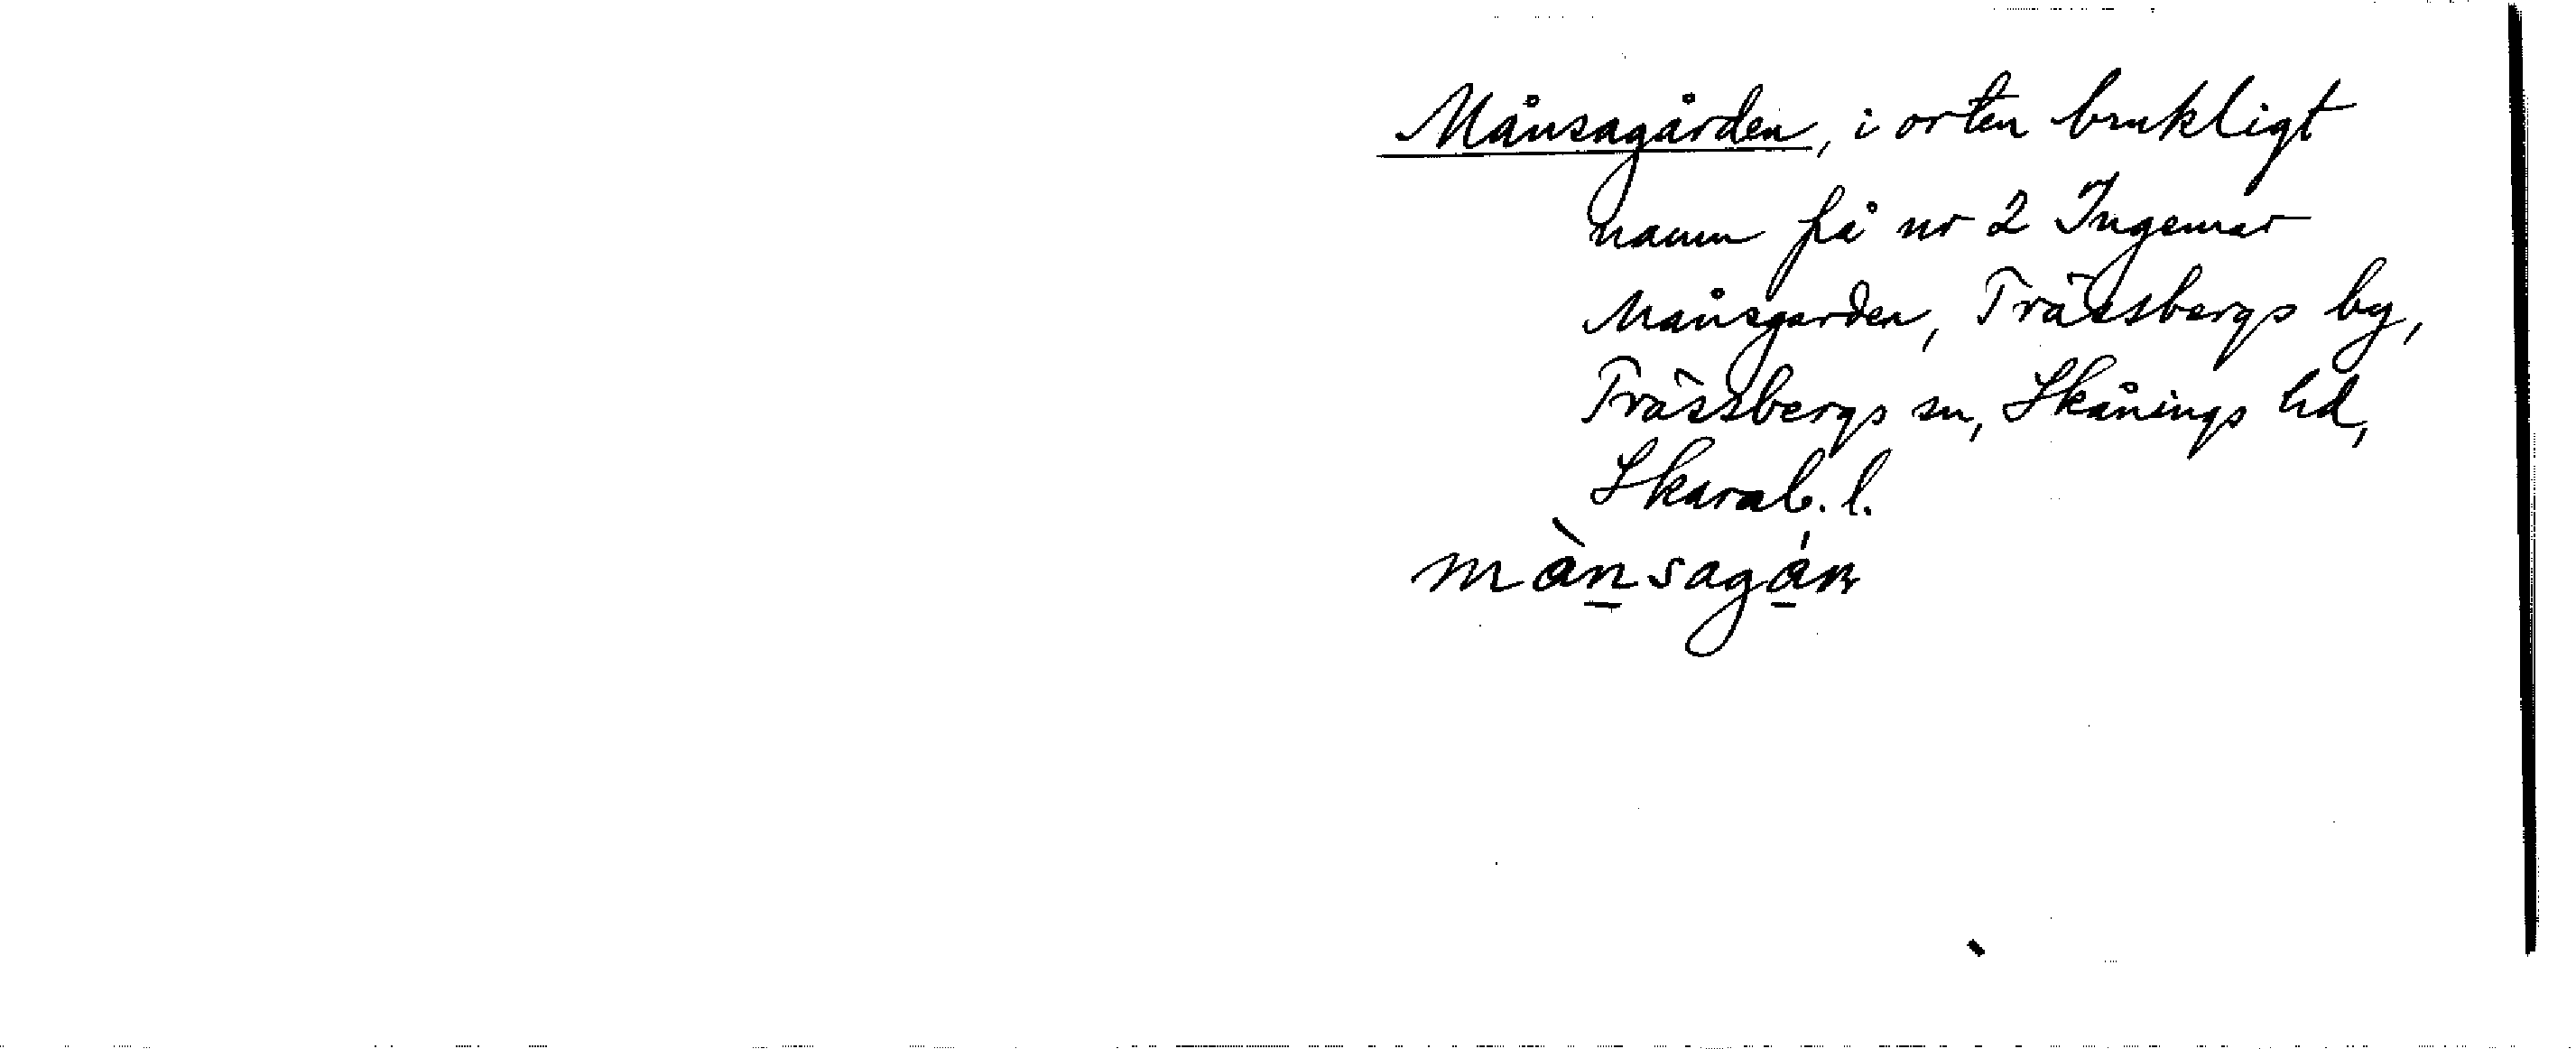 Månsagården, i orten brukligt
namn på nr 2 Ingemar
Månsgården, Trässbergs by,
Trässbergs sn, Skånings hd,
Skarab. l.